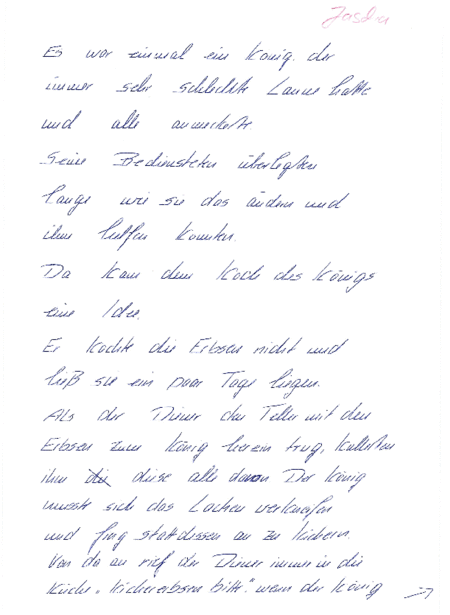 Jascha
Es war einmal ein König, der
immer sehr schlechte Laune hatte
und alle anmeckerte.
Seine Bediensteten überlegten
lange wie sie das ändern und
ihm helfen konnten.
Da kam dem Koch des Königs
eine Idee.
Er kochte die Erbsen nicht und
ließ sie ein paar Tage liegen.
Als der Diener den Teller mit den
Erbsen zum König herein trug, kullerten
ihm die diese alle davon Der König
musste sich das Lachen verkneifen
und fing stattdessen an zu kichern.
Von da an rief der Diener immer in die
Küche "Kichererbsen bitte". wenn der König